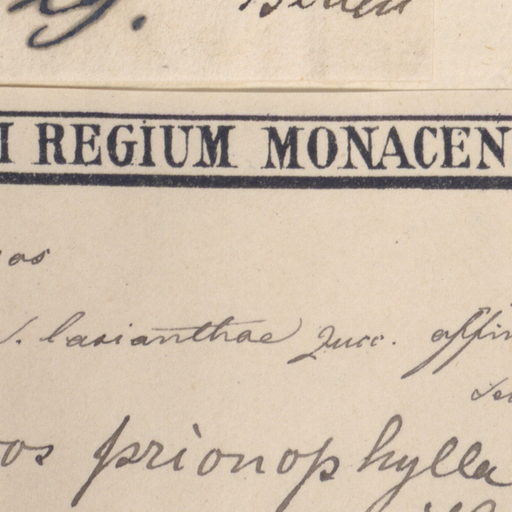 g.
I REGIUM MONACEN
os
lasianthae Zucc. affin
os prionophylla